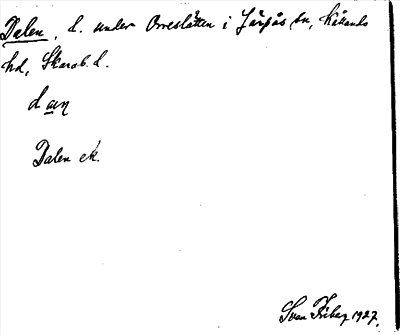 Dalen, l. under Orreslätten i Järpås sn, Kållands
hd, Skarab. l.
dαη
Dalen ek.
Sven Friberg 1927.